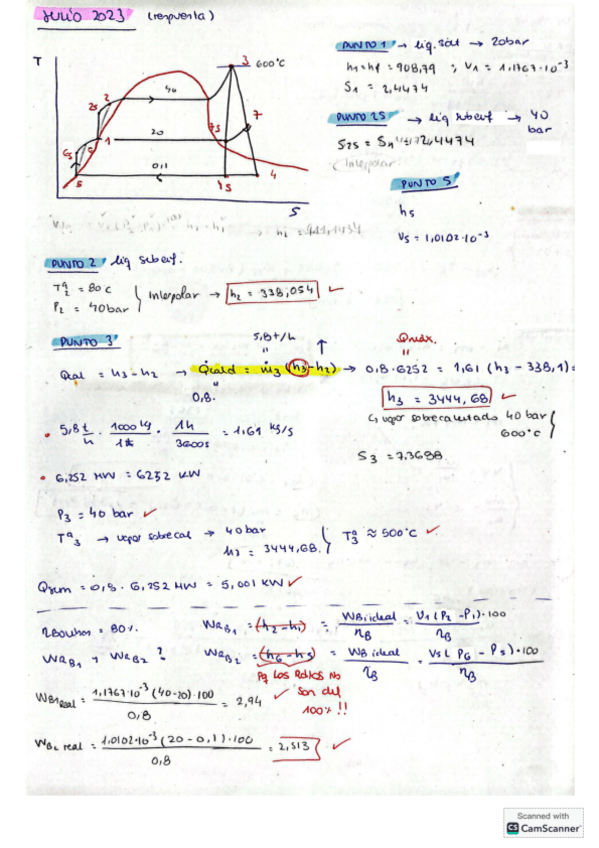 JULIO 2023 (respuesta)
PUNTO 1 → liq. sat → 20bar
h1=hf = 908,79 ; V1 = 1,1767·10⁻³
S1 = 2,4474
T
3 600°C
40
2
2s
1
20
7
7s
6s
6
0,1
5
4s
4
S
PUNTO 2S → liq subenf → 40 bar
S2S = 2,4474
(Interpolar
PUNTO 5
h5
V5 = 1,0102·10⁻³
PUNTO 2 liq subenf.
Tª2 = 80C
P2 = 40bar } Interpolar → h2 = 338,054 ✓
PUNTO 3
5,8t/h
Qmáx.
Qcal = h3-h2 → Qcald = ṁ3 (h3-h2) → 0,8·6252 = 1,61 (h3 - 338,1) =
0,8.
h3 = 3444,68 ✓
↳ vapor sobrecalentado 40 bar
600°C }
• 5,8 t/h · 1000 kg/1t · 1h/3600s = 1,61 kg/s
S3 = 7,3688
• 6,252 MW = 6252 KW
P3 = 40 bar ✓
Tª3 → vapor sobrecal → 40 bar
h3 = 3444,68. } Tª3 ≈ 500°C ✓
Qsum = 0,8 · 6,252 MW = 5,001 KW ✓
ηBombas = 80%. WRB1 = (h2-h1) = WB1 ideal/ηB = V1(P2-P1)·100/ηB
WRB1 y WRB2? WRB2 = (h6-h5) = WB ideal/ηB = V5(P6-P5)·100/ηB
Pq los Rdtos no son del 100% !!
WB1Real = 1,1767·10⁻³ (40-20)·100/0,8 = 2,94 ✓
WB2 real = 1,0102·10⁻³ (20-0,1)·100/0,8 = 2,513 ✓
Scanned with
CS CamScanner